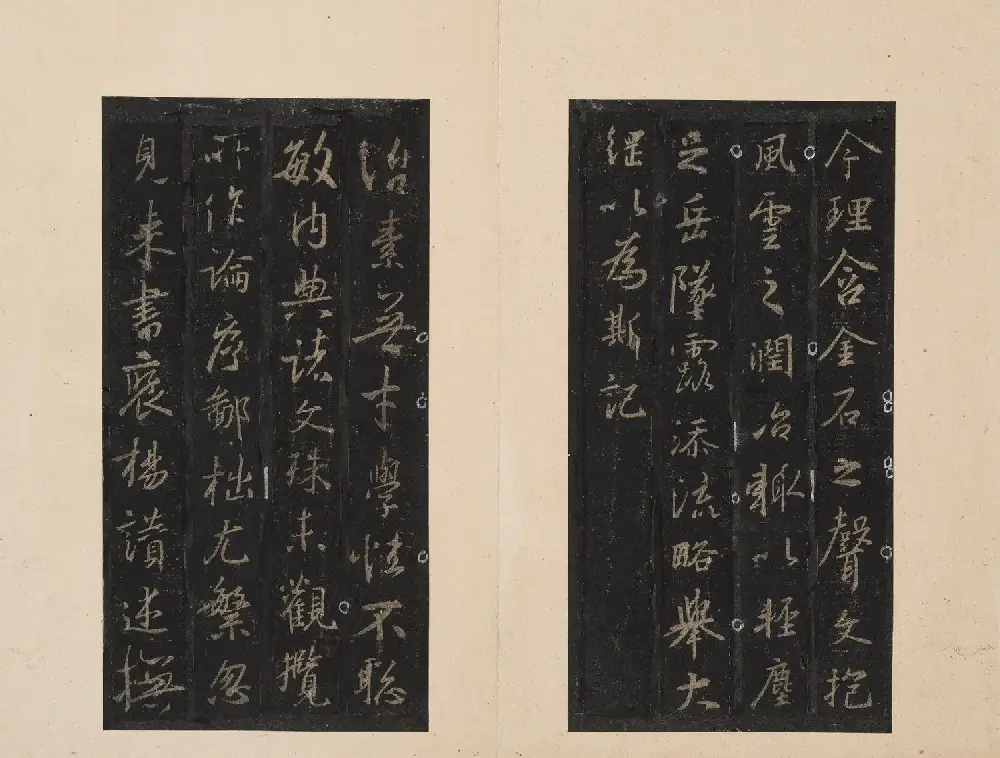 今理含金石之聲文抱
風雲之潤治輙以輕塵
足岳墜露添流略舉大
綱以為斯記
治素無才學性不聡
敏內典諸文殊未觀攬
所作論序鄙拙尤繁忽
見来書褒揚讚述撫